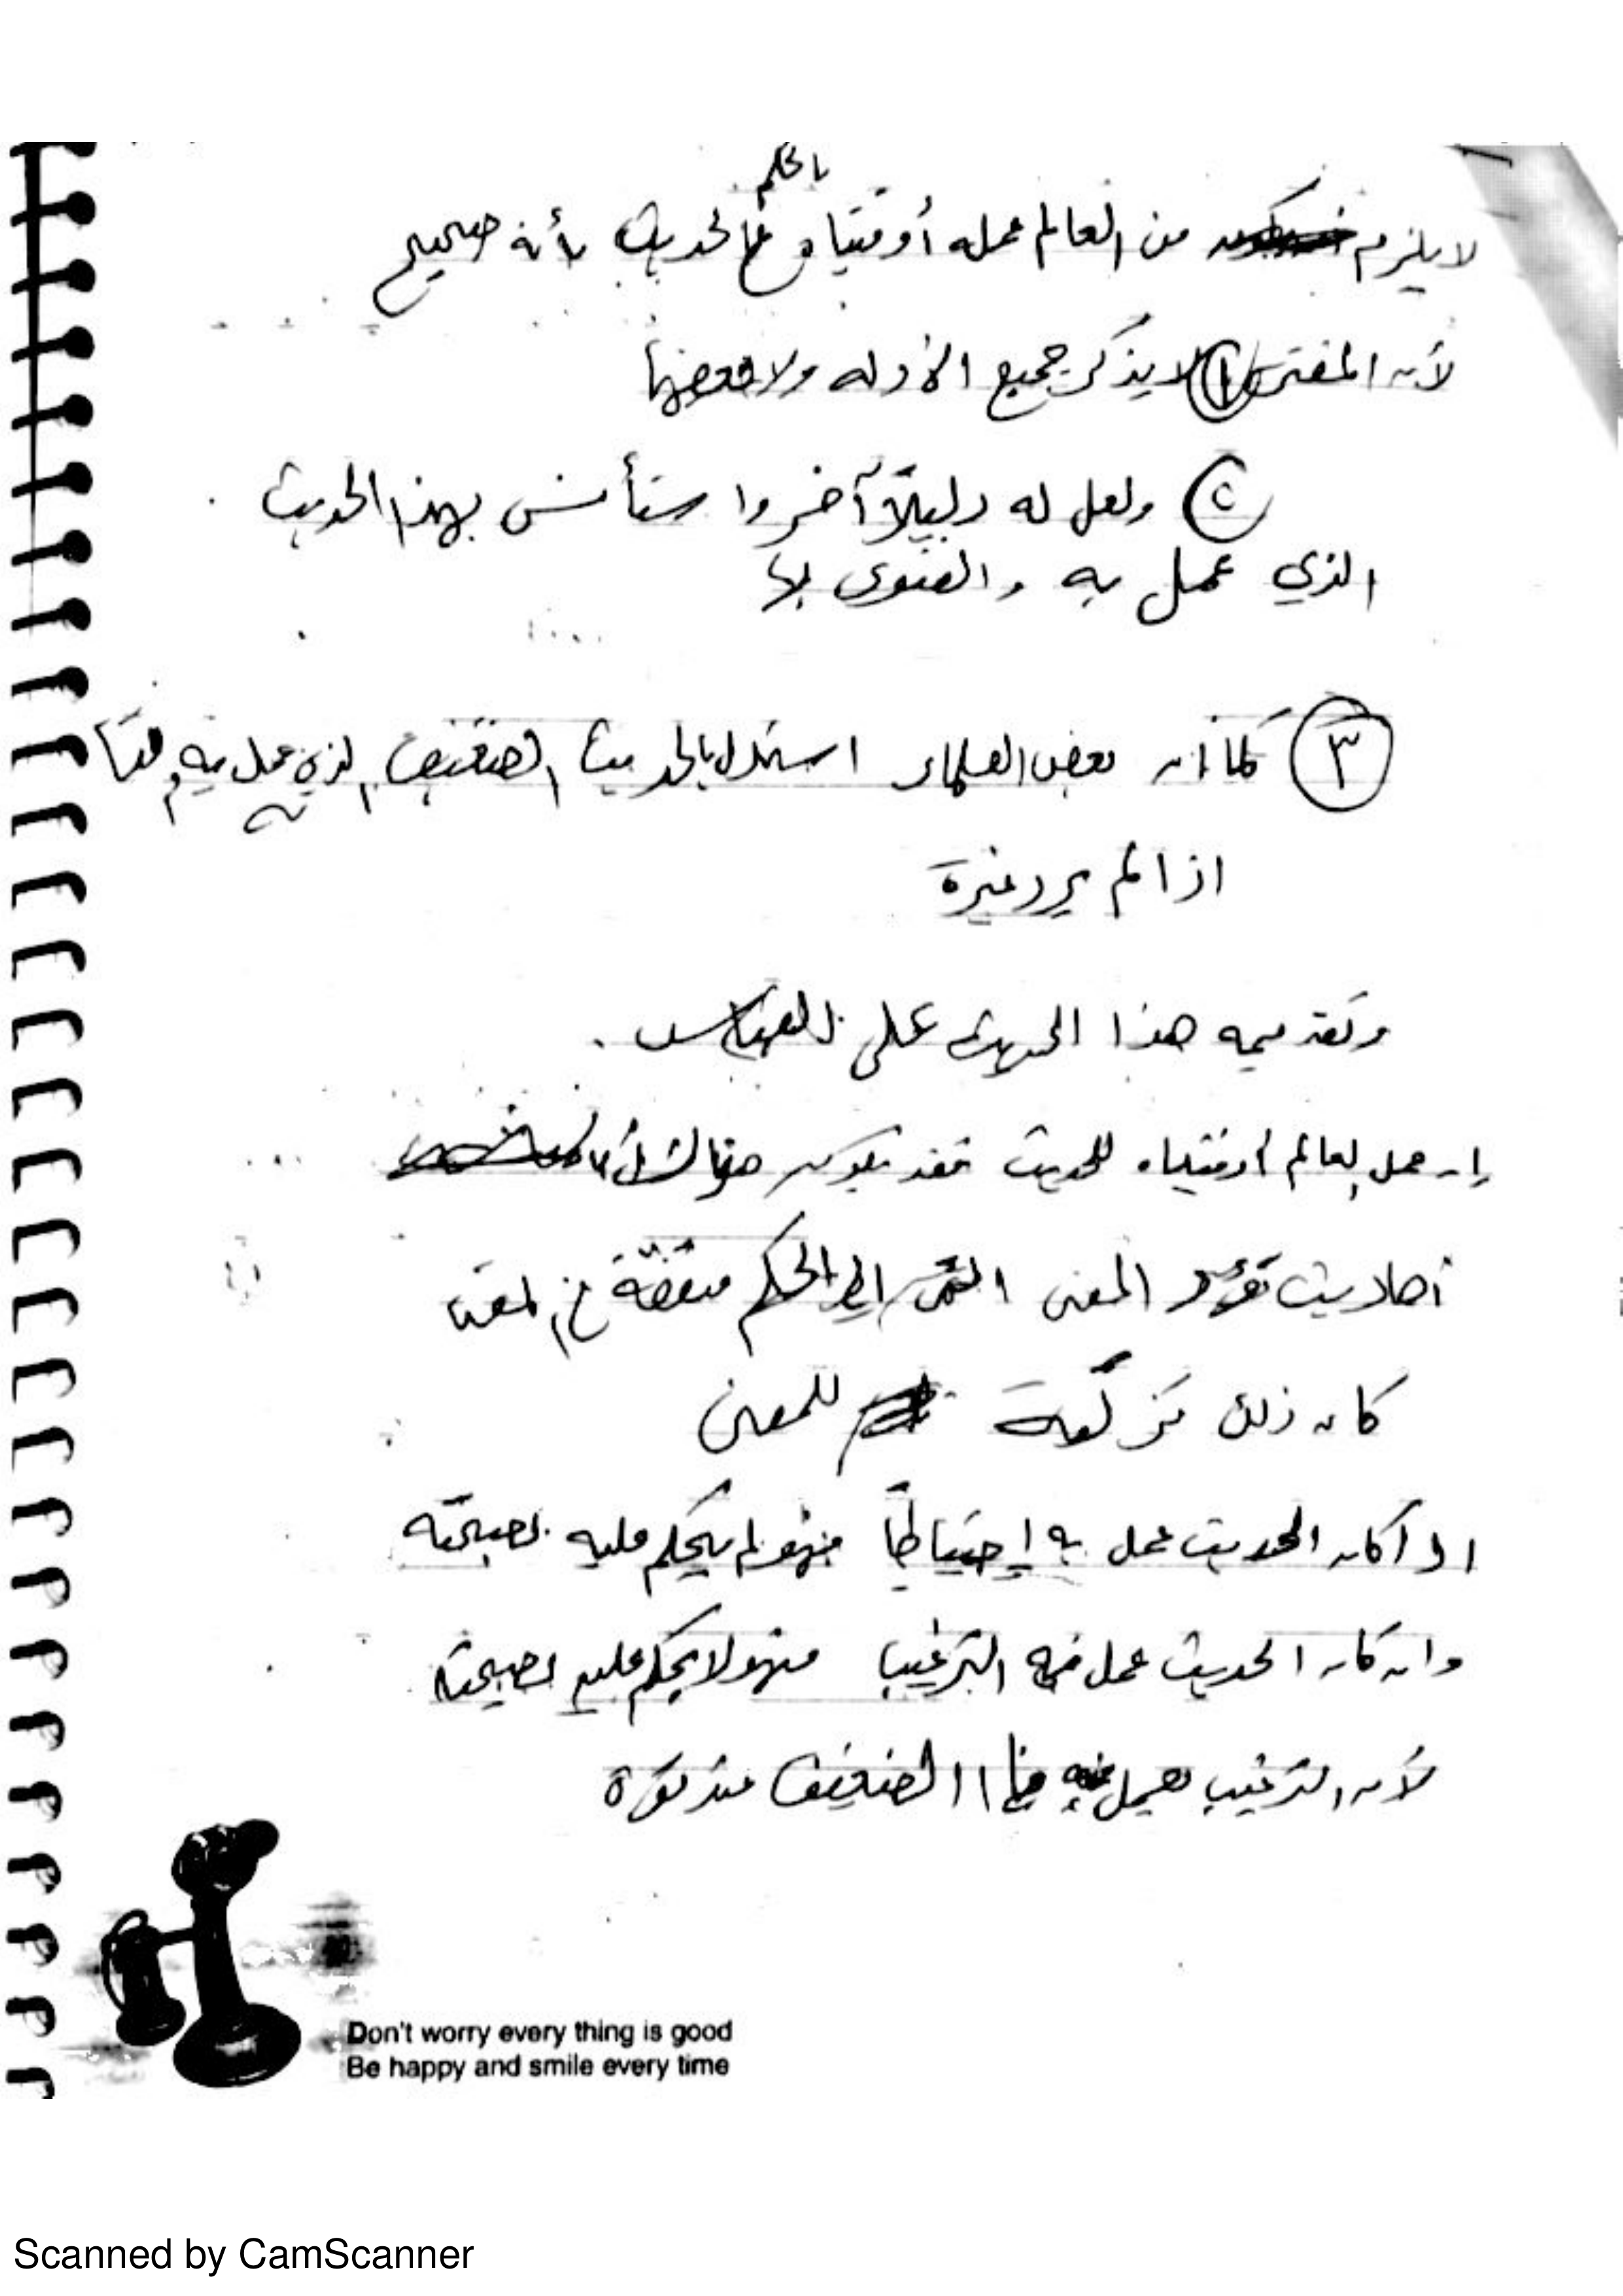 بالحكم
لا يلزم من العالم عمله أو فتياه على الحديث بأنه صحيح
لأن المفتى ١ لا يذكر جميع الأدله ولا بعضها
٢ ولعل له دليلاً آخر واستأنس بهذا الحديث
الذي عمل به والفتوى بها
٣ كما أن بعض العلماء استدل بالحديث الضعيف الذي عمل به
اذا لم يرد غيرة
وتقديمه هذا الحديث على القياس .
إن عمل العالم أو فتياه للحديث فقد يكون هناك
أحاديث تؤيد المعنى الحكم متفقة في المعنى
كان ذلك للمعنى
اذا كان الحديث عمل به إحتياطاً فهو لم يحكم عليه بصحته
وان كان الحديث عمل فيه الترغيب فهو لا يحكم عليه بصحته
لأن الترغيب يعمل الضعيف
Don't worry every thing is good
Be happy and smile every time
Scanned by CamScanner